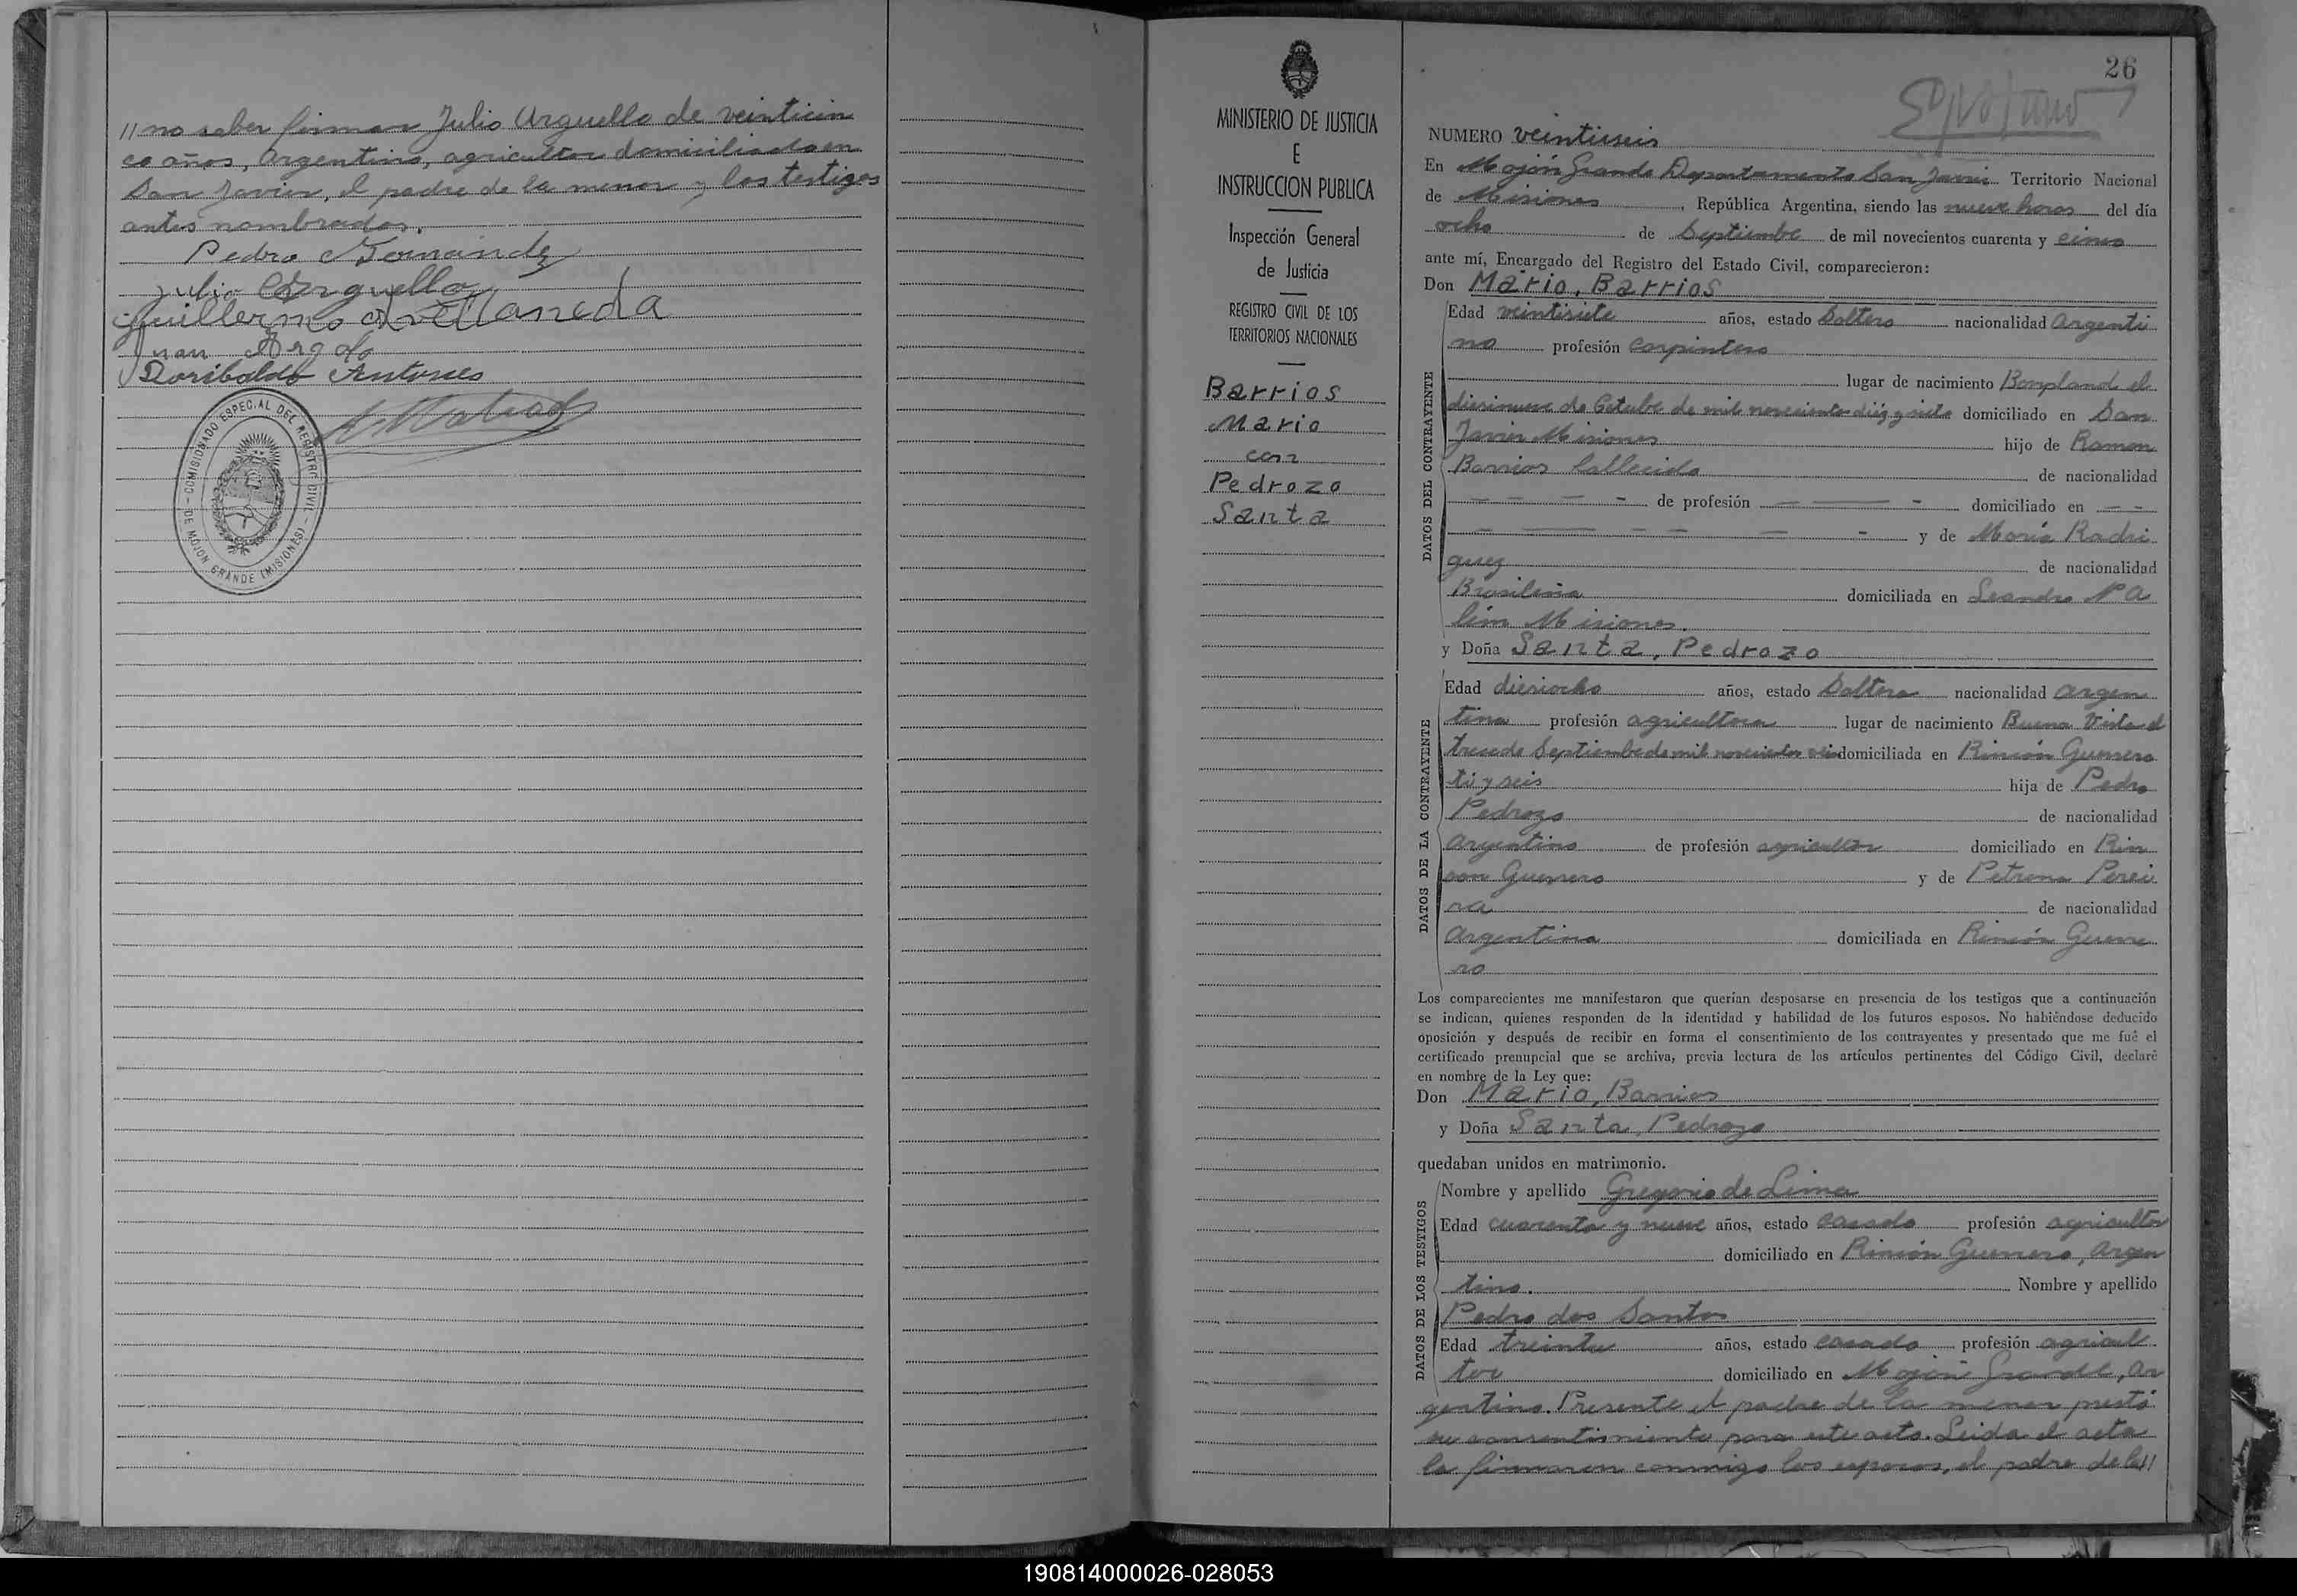 // no saber firmar Julio Arguello de veinticin
co años, Argentino, agricultor domiciliado en
San Javier, el padre de la menor y los testigos
antes nombrados.
Pedro Fernández
Julio Arguello
Guillermo Avellaneda
Juan
Doribaldo Antunes
COMISIONADO ESPECIAL DEL REGISTRO CIVIL
DE MOJON GRANDE (MISIONES)
MINISTERIO DE JUSTICIA
E
INSTRUCCION PUBLICA
Inspección General
de Justicia
REGISTRO CIVIL DE LOS
TERRITORIOS NACIONALES
Barrios
Mario
con
Pedrozo
Santa
26
NUMERO veintiseis
En Mojón Grande Departamento San Javier Territorio Nacional
de Misiones, República Argentina, siendo las nueve horas del día
ocho de Septiembre de mil novecientos cuarenta y cinco
ante mí, Encargado del Registro del Estado Civil, comparecieron:
Don Mario, Barrios
DATOS DEL CONTRAYENTE
Edad veintisiete años, estado Soltero nacionalidad Argenti
no profesión Carpintero
lugar de nacimiento Bonpland el
diesinueve de Octubre de mil novecientos diéz y siete domiciliado en San
Javier Misiones hijo de Ramon
Barrios fallecido de nacionalidad
— — — — de profesión — — — domiciliado en — —
— — — — — — y de María Rodri
guez de nacionalidad
Brasileña domiciliada en Leandro N A
lém Misiones.
y Doña Santa, Pedrozo
DATOS DE LA CONTRAYENTE
Edad diesiocho años, estado Soltera nacionalidad Argen
tina profesión agricultora lugar de nacimiento Buena Vista el
trece de Septiembre de mil novecientos vein domiciliada en Rincón Guerrero
ti y seis hija de Pedro
Pedrozo de nacionalidad
Argentino de profesión agricultor domiciliado en Rin
con Guerrero y de Petrona Perei
ra de nacionalidad
Argentina domiciliada en Rincón Guerre
ro
Los comparecientes me manifestaron que querían desposarse en presencia de los testigos que a continuación
se indican, quienes responden de la identidad y habilidad de los futuros esposos. No habiéndose deducido
oposición y después de recibir en forma el consentimiento de los contrayentes y presentado que me fué el
certificado prenupcial que se archiva, previa lectura de los artículos pertinentes del Código Civil, declaré
en nombre de la Ley que:
Don Mario, Barrios
y Doña Santa, Pedrozo
quedaban unidos en matrimonio.
DATOS DE LOS TESTIGOS
Nombre y apellido Gregorio de Lima
Edad cuarenta y nueve años, estado casado profesión agricultor
domiciliado en Rincón Guerrero, Argen
tino. Nombre y apellido
Pedro dos Santos
Edad treinta años, estado casado profesión agricul
tor domiciliado en Mojón Grande, Ar
gentino. Presente el padre de la menor prestó
su consentimiento para este acto. Leida el acta
la firmaron conmigo los esposos, el padre de la //
190814000026-028053